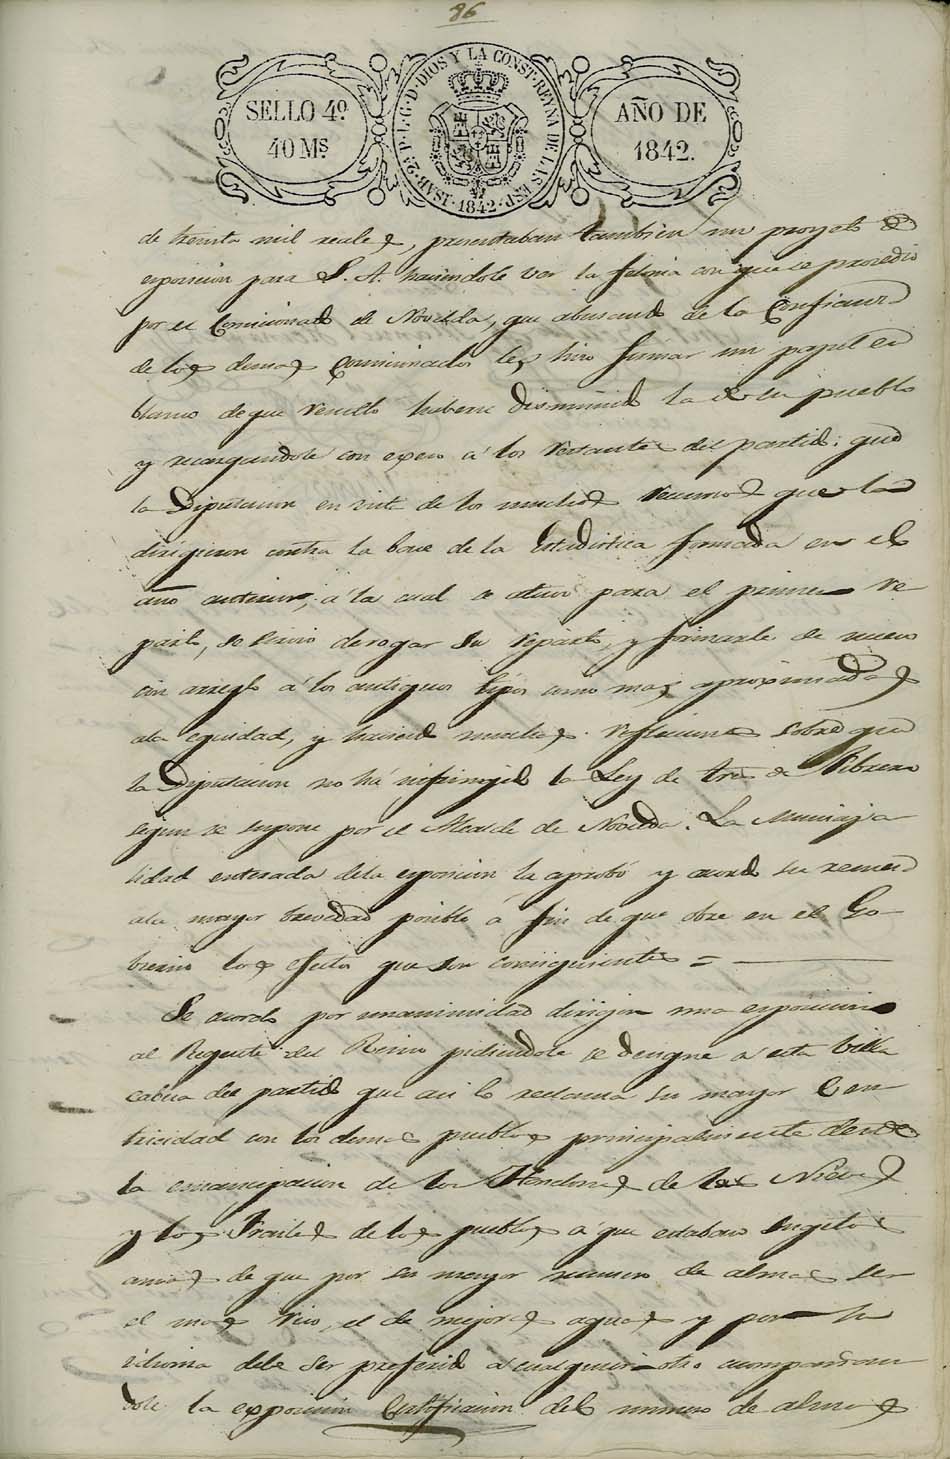 86
SELLO 4º.
40 Ms.
ISAB. 2ª. P. L. G. D. DIOS Y LA CONST. REYNA DE LAS ESP. 1842.
AÑO DE
1842.
de treinta mil reales, presentaban tambien un proyeto de
esposicion para S. A. haciendole ver la felonia con que se procedió
por el Comicionado de Novelda, que abusando de la Confianza
de los demas Comicionados les hizo firmar un papel en
blanco de que resultó haberse disminuido la de su pueblo
y recargandole con exceso á los restantes del partido; que
la Diputacion en vista de los muchos recursos que la
dirigieron contra la base de la Estadistica formada en el
año anterior, á la cual se atuvo para el primer re-
parto, se sirvió derogar su reparto, y formarle de nuevo
con arreglo á los antiguos tipos como mas aproximados
ala equidad, y haciendo muchas reflecciones sobre que
la Diputacion no há infringido la Ley de tres de Febrero
segun se supone por el Alcalde de Novelda. La Municipa-
lidad enterada dela esposicion la aprobó y acordó su remesa
ala mayor brevedad posible á fin de que obre en el Go-
bierno los efectos que son consiguientes =
Se acordó por unanimidad dirijir una esposicion
al Regente del Reino pidiendole se designe á esta Villa
cabeza del partido que asi lo reclama su mayor Cen-
tricidad con los demas pueblos principalmente desde
la emancipacion de los Hondones de las Nieves
y los Frailes de los pueblos á que estaban sugetos
amas de que por su mayor numero de almas ser
el mas rico, el de mejores aguas y por su
idioma debe ser preferido á cualquiera otro acompañan-
dole la exposicion Certificacion del numero de almas